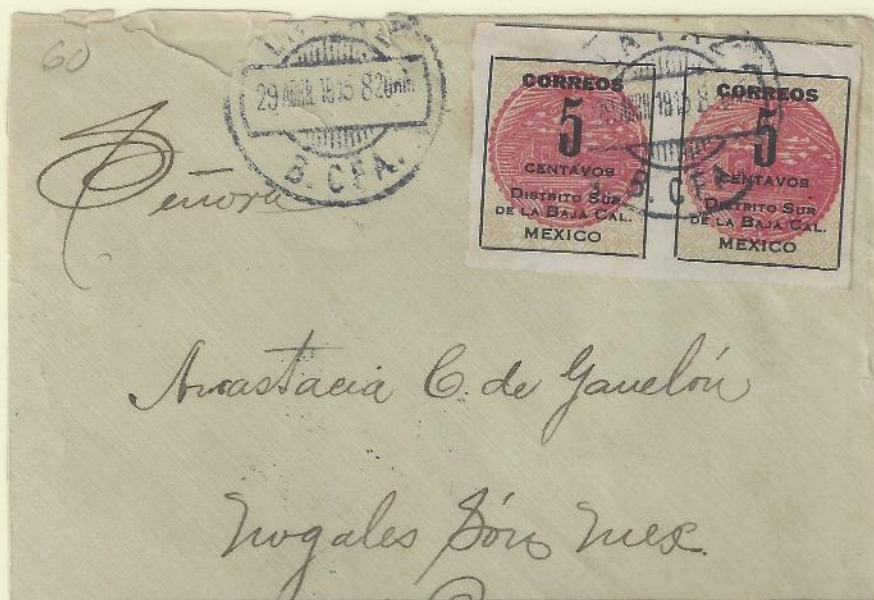 60
LA PAZ
29 ABRIL 1915 8 20AM
B. CFA.
CORREOS
5
CENTAVOS
DISTRITO SUR
DE LA BAJA CAL.
MEXICO
LA PAZ
29 ABRIL 1915 8
B. CFA.
CORREOS
5
CENTAVOS
DISTRITO SUR
DE LA BAJA CAL.
MEXICO
Señora
Anastacia C. de Gaucelón
Nogales Són Mex.